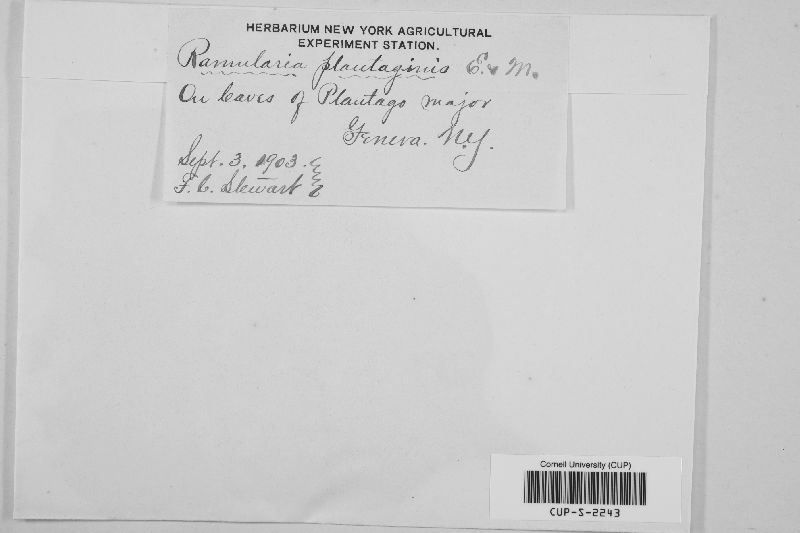 HERBARIUM NEW YORK AGRICULTURAL
EXPERIMENT STATION.
Ramularia plantaginis E. & M.
On leaves of Plantago major
Geneva. N.Y.
Sept. 3. 1903.
F. C. Stewart
Cornell University (CUP)
CUP-S-2243